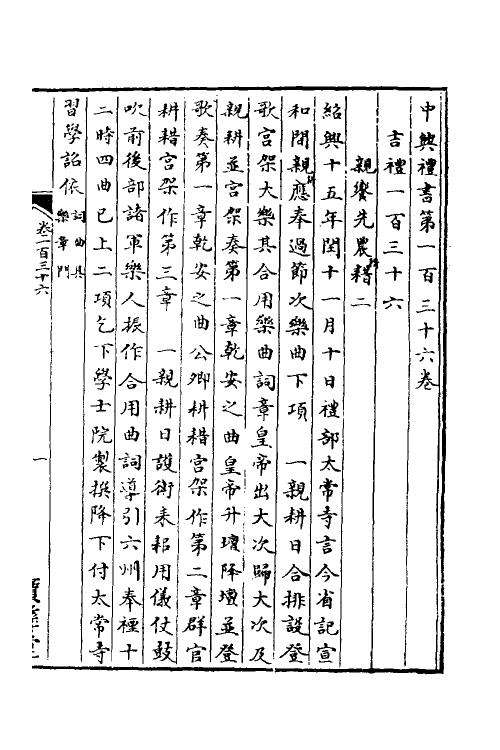 中興禮書第一百三十六卷
吉禮一百三十六
親饗先農耤二
紹興十五年閏十一月十日禮部太常寺言今省記宣
和間親耕應奉過節次樂曲下項　一親耕日合排設登
歌宫架大樂其合用樂曲詞章皇帝出大次歸大次及
親耕並宫架奏第一章乾安之曲皇帝升壇降壇並登
歌奏第一章乾安之曲公卿耕耤宫架作第二章群官
耕耤宫架作第三章　一親耕日護衛耒耜用儀仗鼓
吹前後部諸軍樂人振作合用曲詞導引六州奉禋十
二時四曲已上二項乞下學士院製撰降下付太常寺
習學詔依詞曲具樂章門
卷一百三十六
一